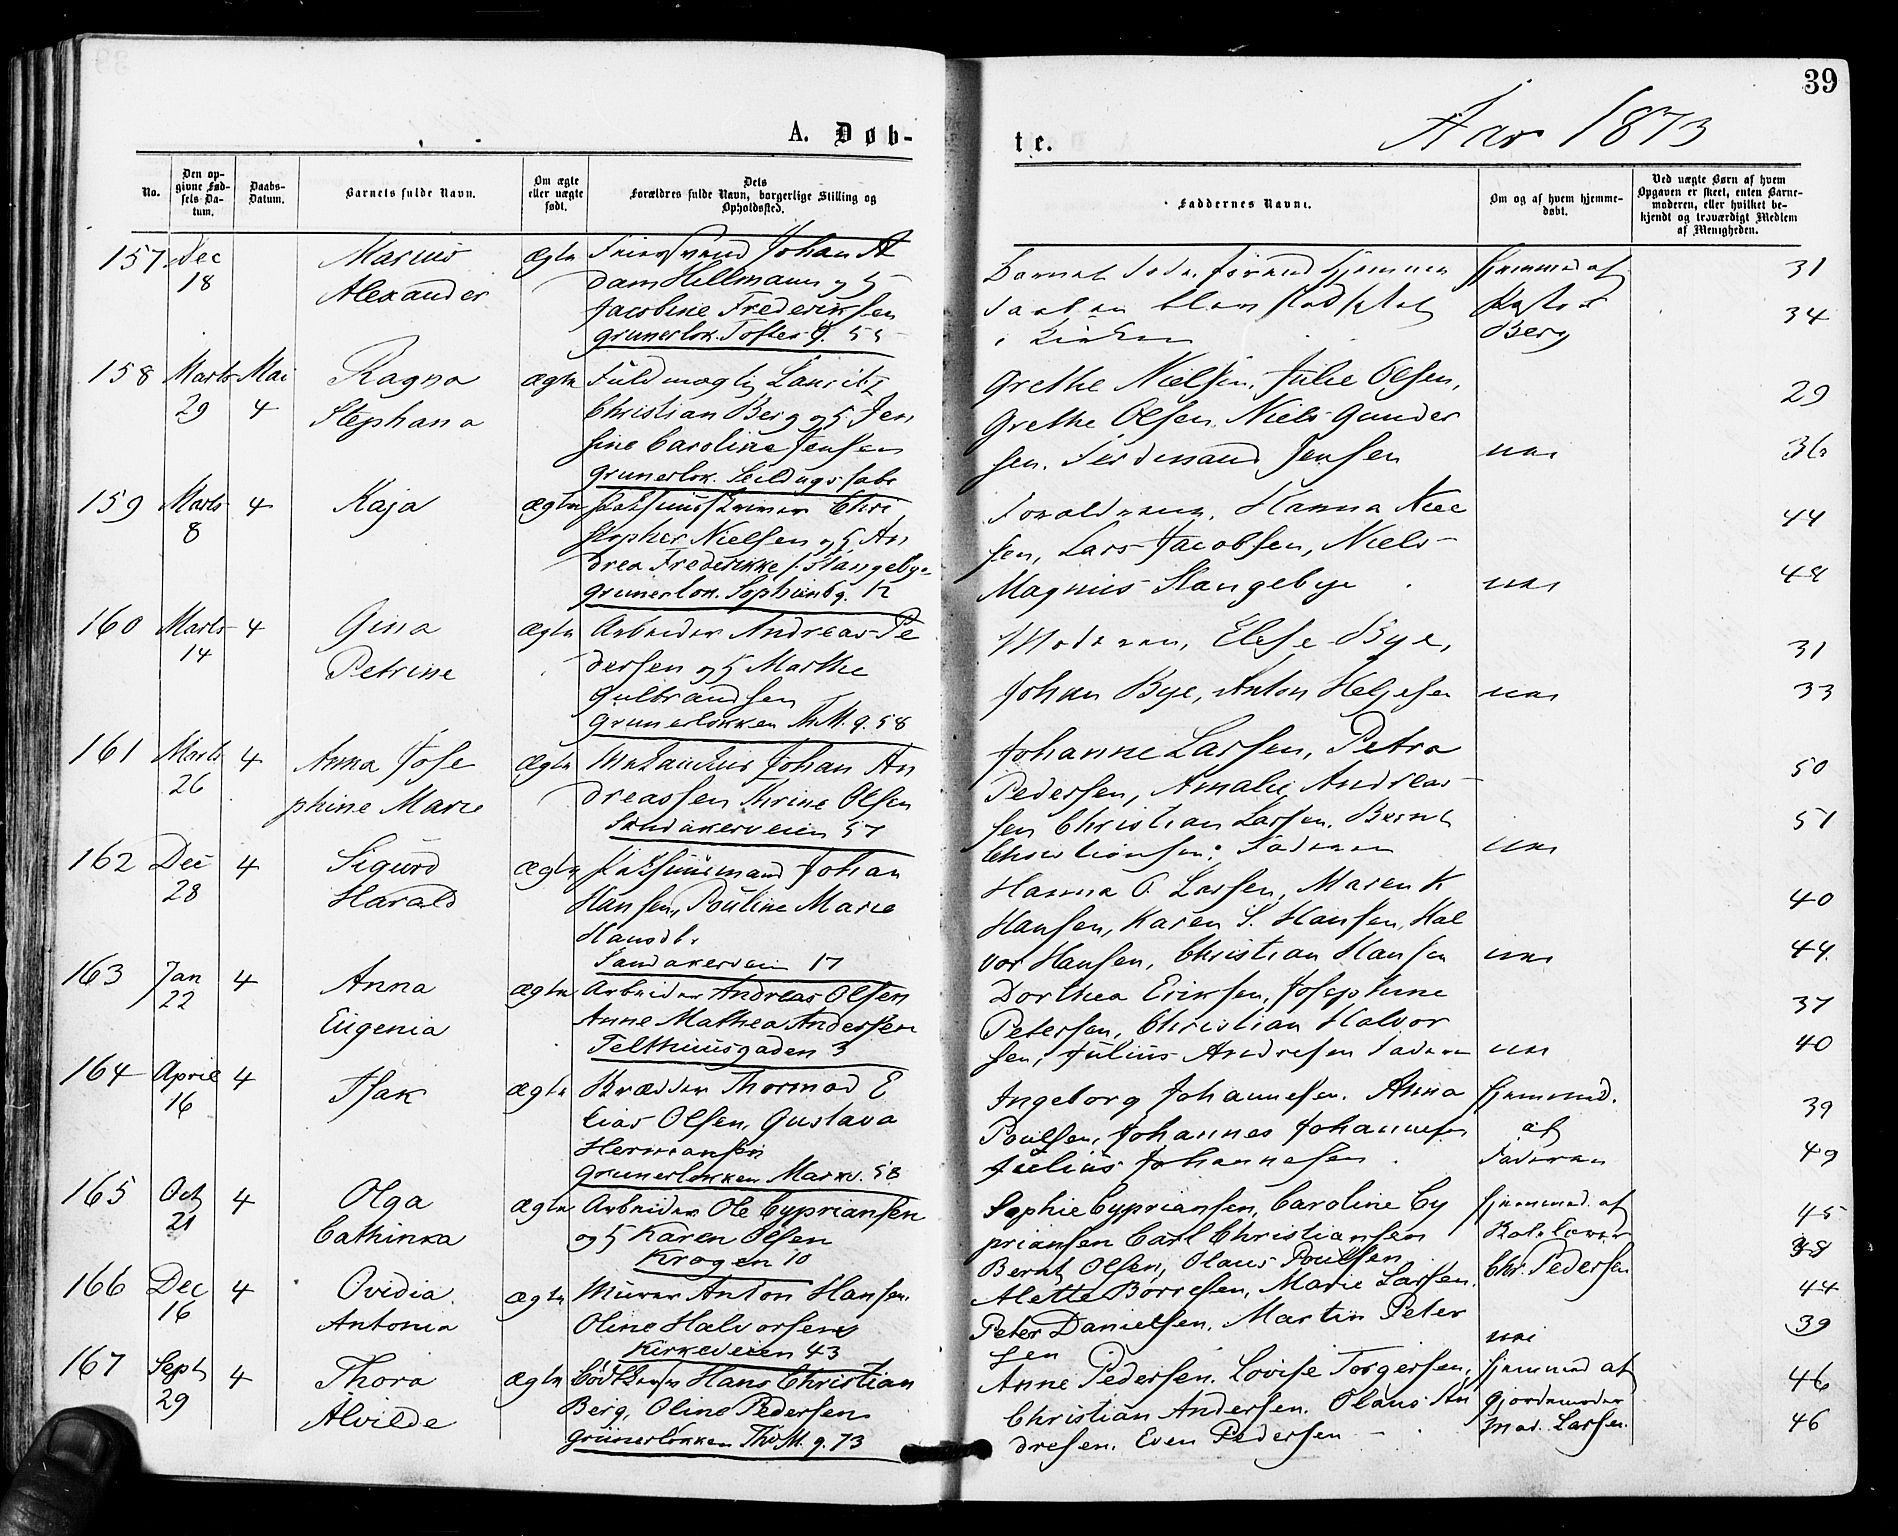 39
A. Døb-
te.
Aar 1873
No.
Den op-
givne Fød-
sels-Da-
tum.
Daabs-
Datum.
Barnets fulde Navn.
Om ægte
eller uægte
født.
Dets
Forældres fulde Navn, borgerlige Stilling og
Opholdssted.
Faddernes Navne.
Om og af hvem hjemme-
døbt.
Ved uægte Børn af hvem
Opgaven er skeet, enten Barne-
moderen, eller hvilket be-
kjendt og troværdigt Medlem
af Menigheden.
157 Dec 18
Marius
Alexander
ægte
Johan A
dam Hellmann og H
Jacobine Frederiksen
Grunerløk. Toftes g. 55
Barnet døde
i Kirken
hjemmed af
Pastor
Berg
31
34
158 Marts 29 Mai 4
Ragna
Stephana
ægte
Fuldmægtig Lauritz
Christian Berg og H Jen
sine Caroline Jensen
Grunerløk. Seildugsfabr
Grethe Nielsen, Julie Olsen,
Grethe Olsen, Niels Gunder
sen. Ferdinand Jensen
nei
29
36
159 Marts 8 4
Kaja
ægte
Chri
stopher Nielsen og H An
drea Frederikke f. Stangebye
Grunerløk. Sophienbg. 12
Forældrene, Hanna Niel
sen, Lars Jacobsen, Niels
Magnus Stangebye
nei
44
48
160 Marts 14 4
Gina
Petrine
ægte
Arbeider Andreas Pe
dersen og H Marthe
Gulbrandsen
Grunerløkken Th M. g. 58
Moderen, Elise Bye,
Johan Bye, Anton Helgesen
nei
31
33
161 Marts 26 4
Anna Jose
phine Marie
ægte
Johan An
dreassen Thrine Olsen
Sandakerveien 57
Johanne Larsen, Petra
Pedersen, Amalie Andreas
sen Christian Larsen. Bernt
Christiansen. Faderen
nei
50
51
162 Dec 28 4
Sigurd
Harald
ægte
Johan
Hansen, Pouline Marie
Hansdtr
Sandakerveien 17
Hanna O. Larsen, Maren K
Hansen, Karen S. Hansen, Hal
vor Hansen, Christian Hansen
nei
40
44
163 Jan 22 4
Anna
Eugenia
ægte
Arbeider Andreas Olsen
Anne Mathea Andersen
Telthuusgaden 3
Dorthea Eriksen, Josephine
Petersen, Christian Halvor
sen, Julius Andresen Faderen
nei
37
40
164 April 16 4
Isak
ægte
Thormod E
lias Olsen, Gustava
Hermansen
Grunerløkken Markv. 58
Ingeborg Johannesen. Anna
Poulsen, Johannes Johannesen
Julius Johannesen
hjemmed.
af
Faderen
39
49
165 Oct 21 4
Olga
Cathinka
ægte
Arbeider Ole Cypriansen
og H Karen Olsen
Krogen 10
Sophie Cypriansen, Caroline Cy
priansen Carl Christiansen
Bernt Olsen, Olaus Poulsen
hjemmed. af
Chr. Pedersen
45
166 Dec 16 4
Ovidia
Antonia
ægte
Murer Anton Hansen.
Oline Halvorsen
Kirkeveien 43
Alette Borresen, Marie Larsen.
Peter Danielsen. Martin Peter
sen
nei
44
39
167 Sept 29 4
Thora
Alvilde
ægte
Hans Christian
Berg, Oline Pedersen
Grünerløkken Thv M. g. 73
Anne Pedersen. Lovise Torgersen,
Christian Andersen. Olaus An
dresen. Even Pedersen
hjemmed af
Gjordemoder
Mad. Larsen.
46
46